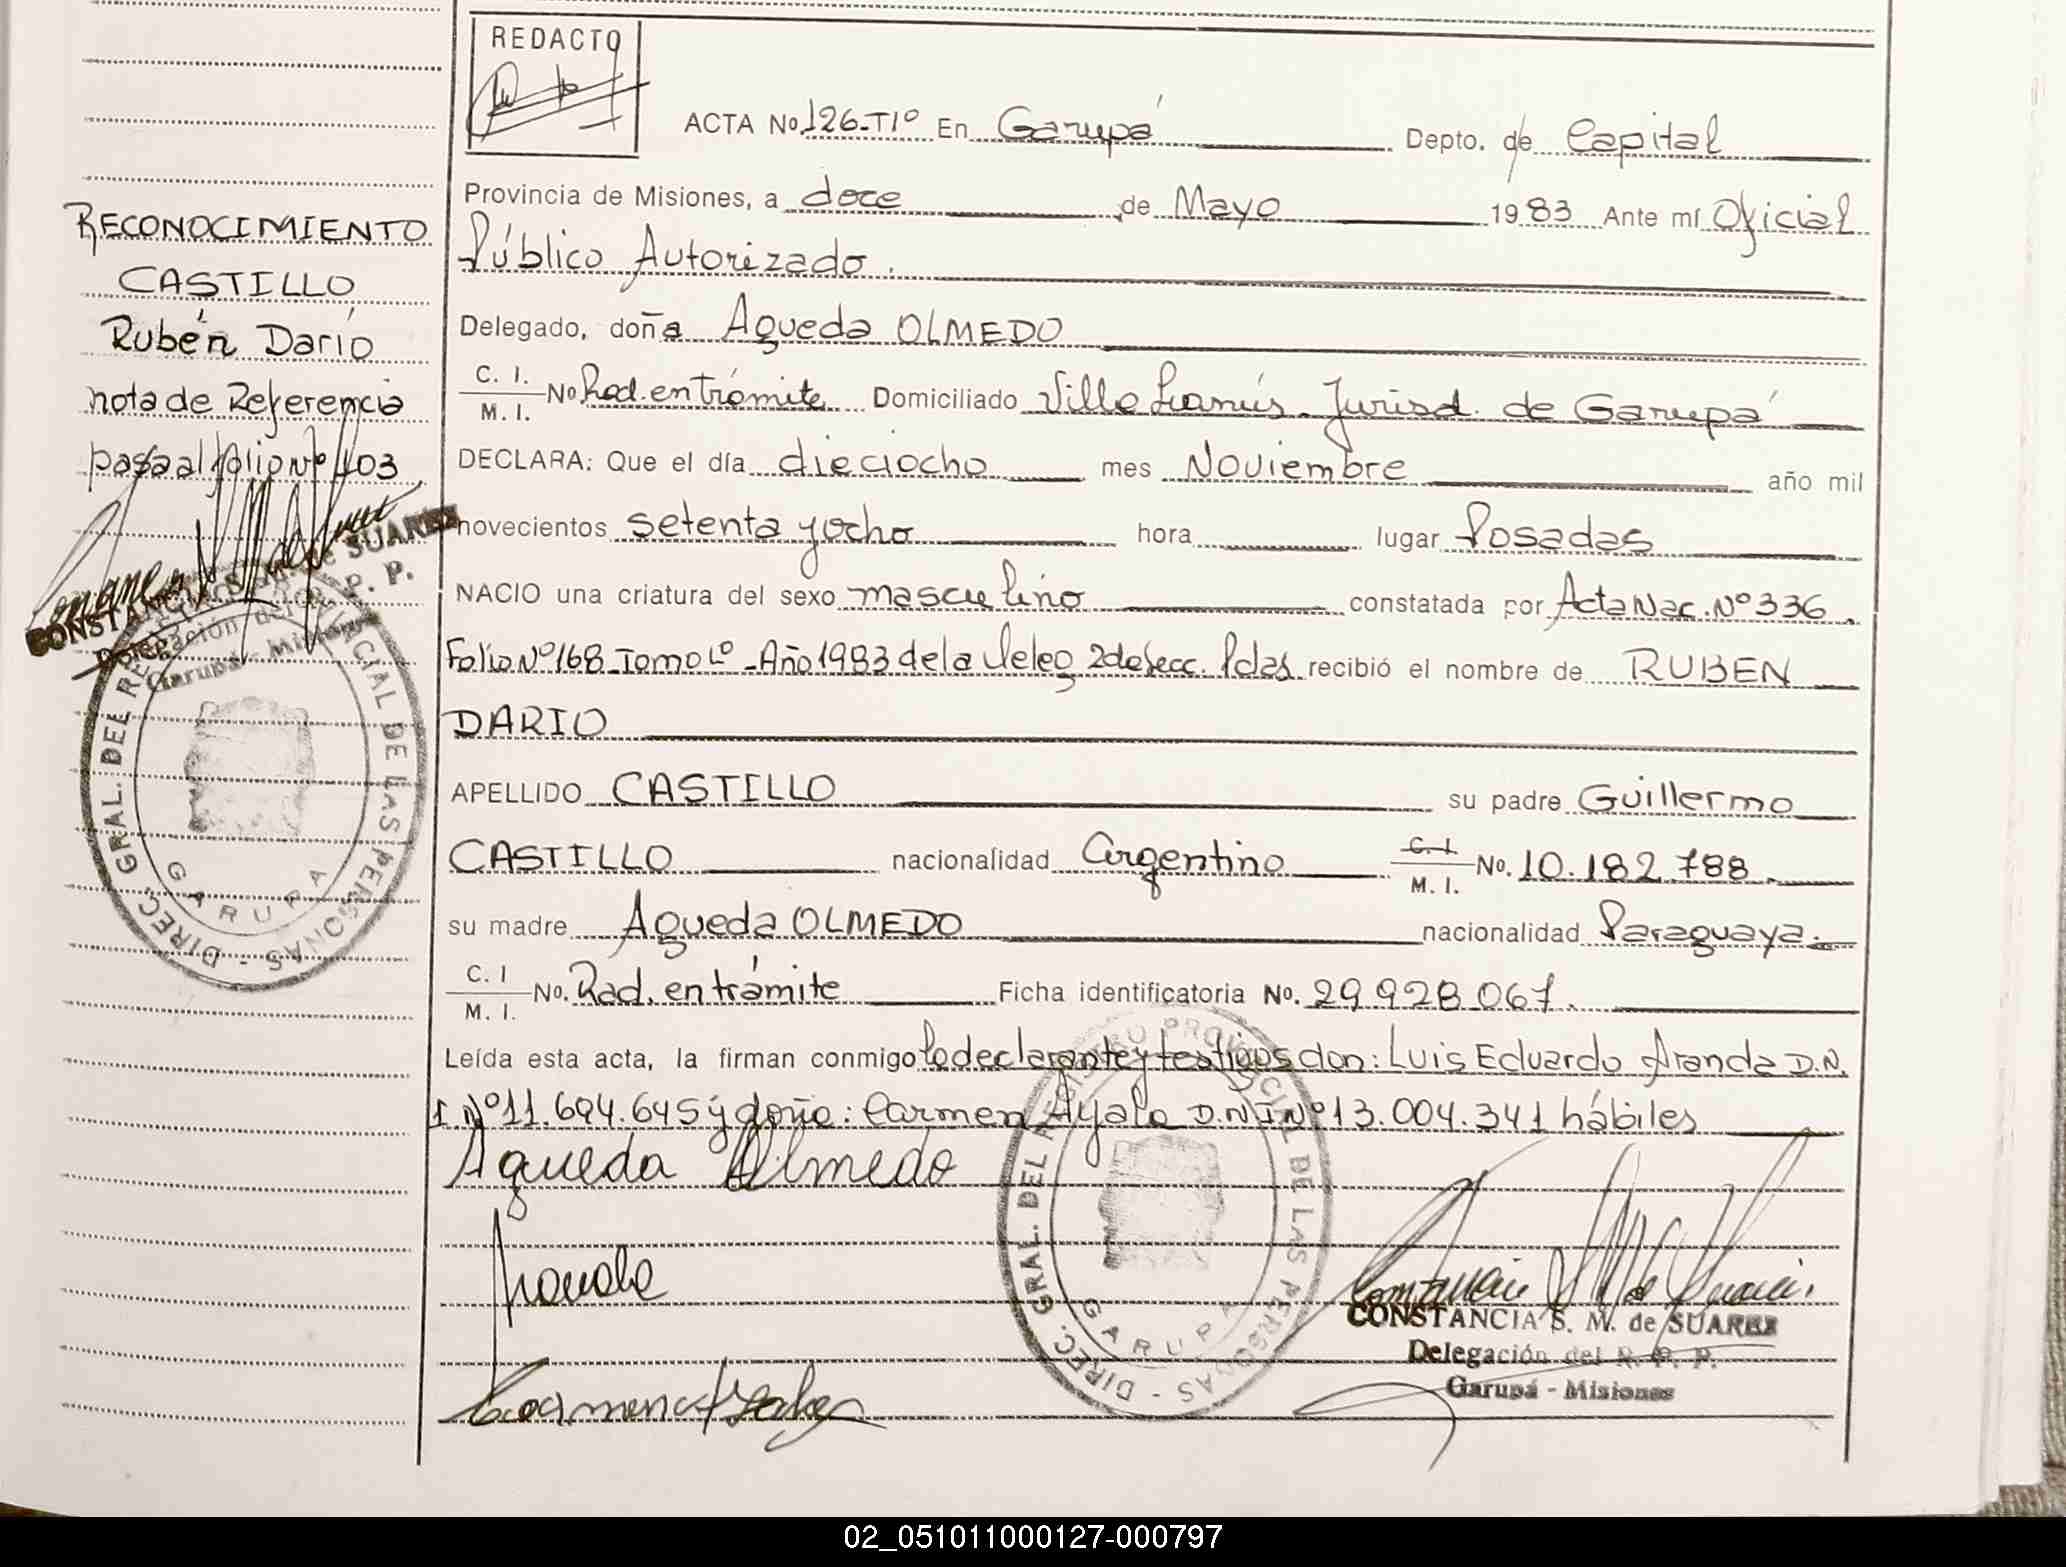 REDACTO
ACTA No. 126-TIº En Garupá Depto. de Capital
Provincia de Misiones, a doce de Mayo 1983 Ante mí Oficial
Público Autorizado.
Delegado, doña Agueda OLMEDO
C. I.
M. I. No Rad. en trámite Domiciliado Villa Lanús. Jurisd. de Garupá
DECLARA: Que el día dieciocho mes Noviembre año mil
novecientos setenta y ocho hora lugar Posadas
NACIO una criatura del sexo masculino constatada por Acta Nac. Nº 336.
Folio Nº 168 - Tomo Iº - Año 1983 de la Deleg 2da Secc. Pdas. recibió el nombre de RUBEN
DARIO
APELLIDO CASTILLO su padre Guillermo
CASTILLO nacionalidad argentino C. I.
M. I. No. 10.182.788.
su madre Agueda OLMEDO nacionalidad Paraguaya.
C. I
M. I. No. Rad. en trámite Ficha identificatoria No. 29.928.067.
Leída esta acta, la firman conmigo la declarante y testigos don: Luis Eduardo Aranda D.N.
I. Nº 11.694.645 y doña: Carmen Ayala D.N.I Nº 13.004.341 hábiles
Agueda Olmedo
CONSTANCIA S. M. de SUAREZ
Delegación del R. P. P.
Garupá - Misiones
DIREC. GRAL. DEL REGISTRO PROVINCIAL DE LAS PERSONAS -
GARUPA
RECONOCIMIENTO
CASTILLO
Rubén Darío
nota de Referencia
pasa al folio Nº 103
CONSTANCIA S. M. de SUAREZ
Delegación del R. P. P.
Garupá - Misiones
DIREC. GRAL. DEL REGISTRO PROVINCIAL DE LAS PERSONAS -
GARUPA
02_051011000127-000797